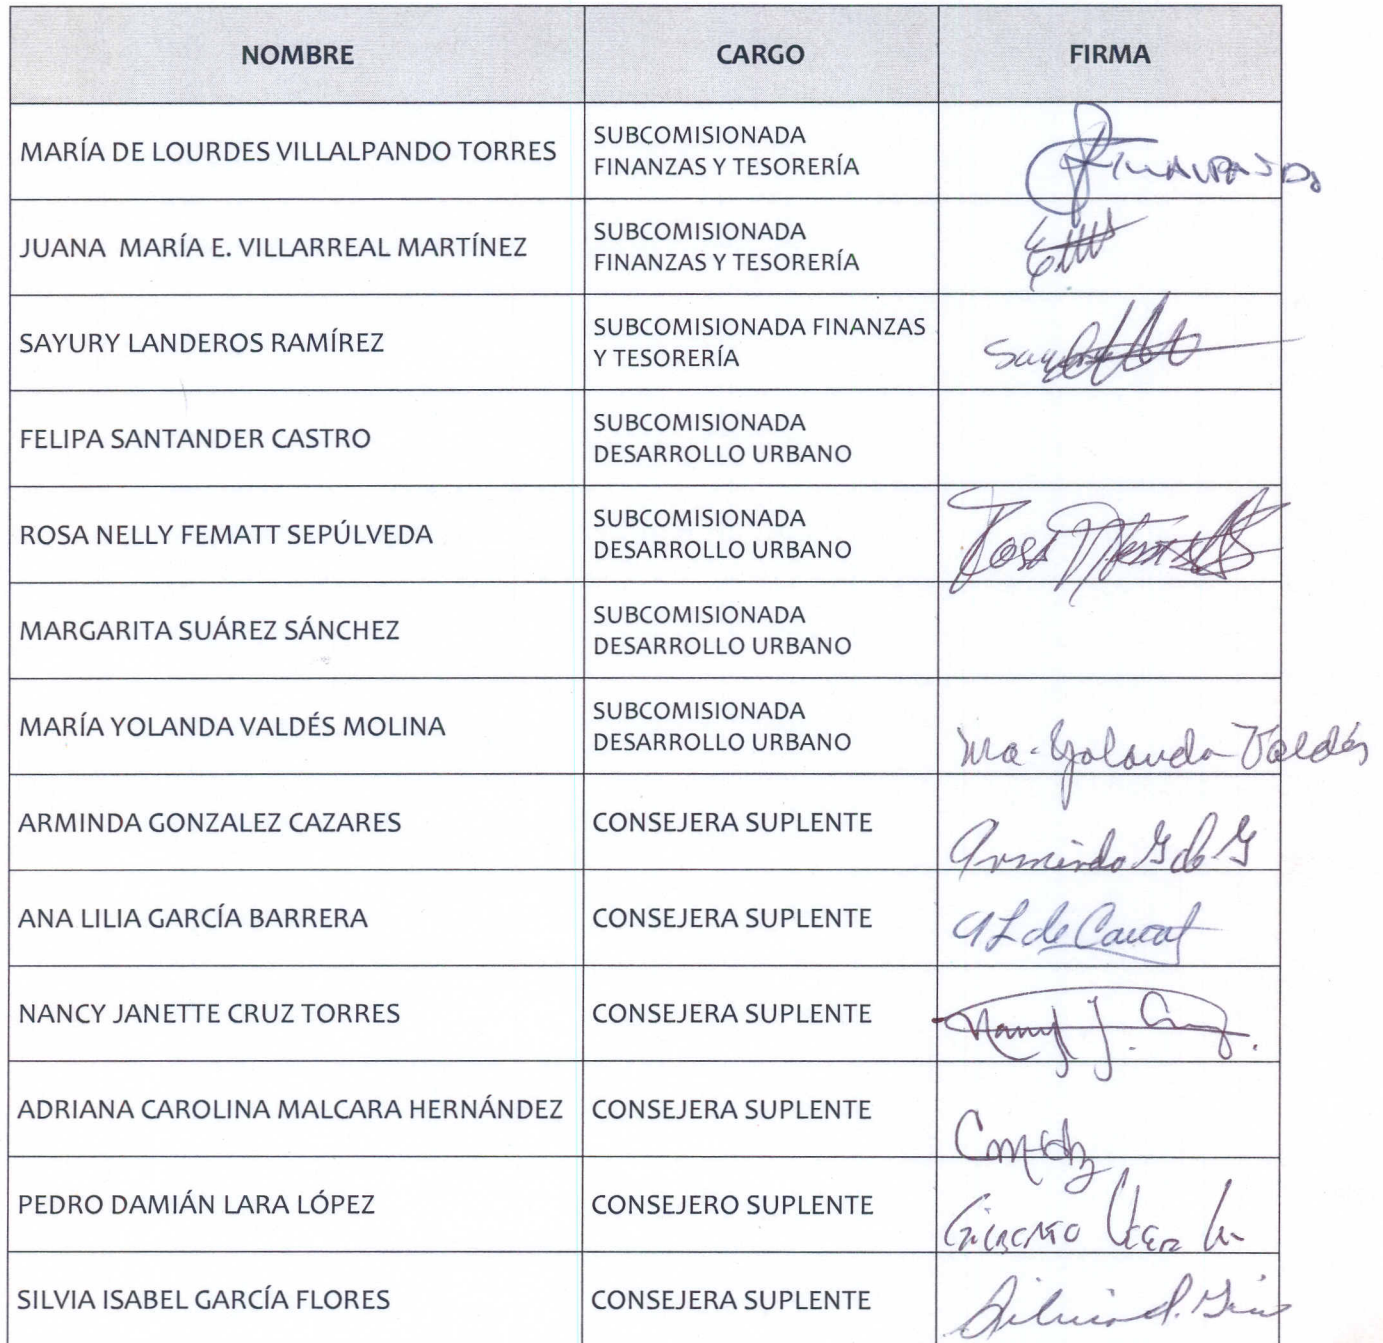 NOMBRE CARGO FIRMA
MARÍA DE LOURDES VILLALPANDO TORRES
SUBCOMISIONADA
FINANZAS Y TESORERÍA
JUANA MARÍA E. VILLARREAL MARTÍNEZ
SUBCOMISIONADA
FINANZAS Y TESORERÍA
SAYURY LANDEROS RAMÍREZ
SUBCOMISIONADA FINANZAS
Y TESORERÍA
FELIPA SANTANDER CASTRO
SUBCOMISIONADA
DESARROLLO URBANO
ROSA NELLY FEMATT SEPÚLVEDA
SUBCOMISIONADA
DESARROLLO URBANO
Rosa
MARGARITA SUÁREZ SÁNCHEZ
SUBCOMISIONADA
DESARROLLO URBANO
MARÍA YOLANDA VALDÉS MOLINA
SUBCOMISIONADA
DESARROLLO URBANO
Ma. Yolanda Valdés
ARMINDA GONZALEZ CAZARES CONSEJERA SUPLENTE Arminda G de G
ANA LILIA GARCÍA BARRERA CONSEJERA SUPLENTE
NANCY JANETTE CRUZ TORRES CONSEJERA SUPLENTE Nancy J. Cruz.
ADRIANA CAROLINA MALCARA HERNÁNDEZ CONSEJERA SUPLENTE
PEDRO DAMIÁN LARA LÓPEZ CONSEJERO SUPLENTE
SILVIA ISABEL GARCÍA FLORES CONSEJERA SUPLENTE